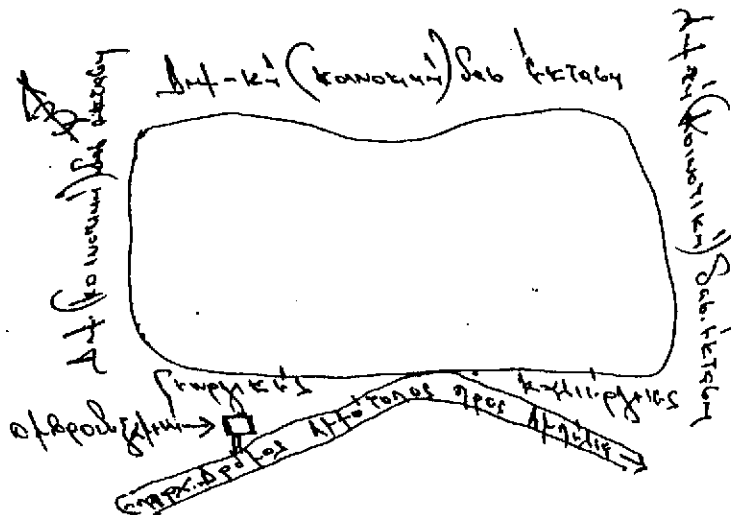 Δημ-κή (κοινοτική) δασ. έκταση
Δημ. (κοινοτική) δασ. έκταση
Δημ-κή (κοινοτική) δασ. έκταση
γεωργικές
καλλιέργειες
ομβροδεξαμενή
επαρχ. Δρόμος
προς